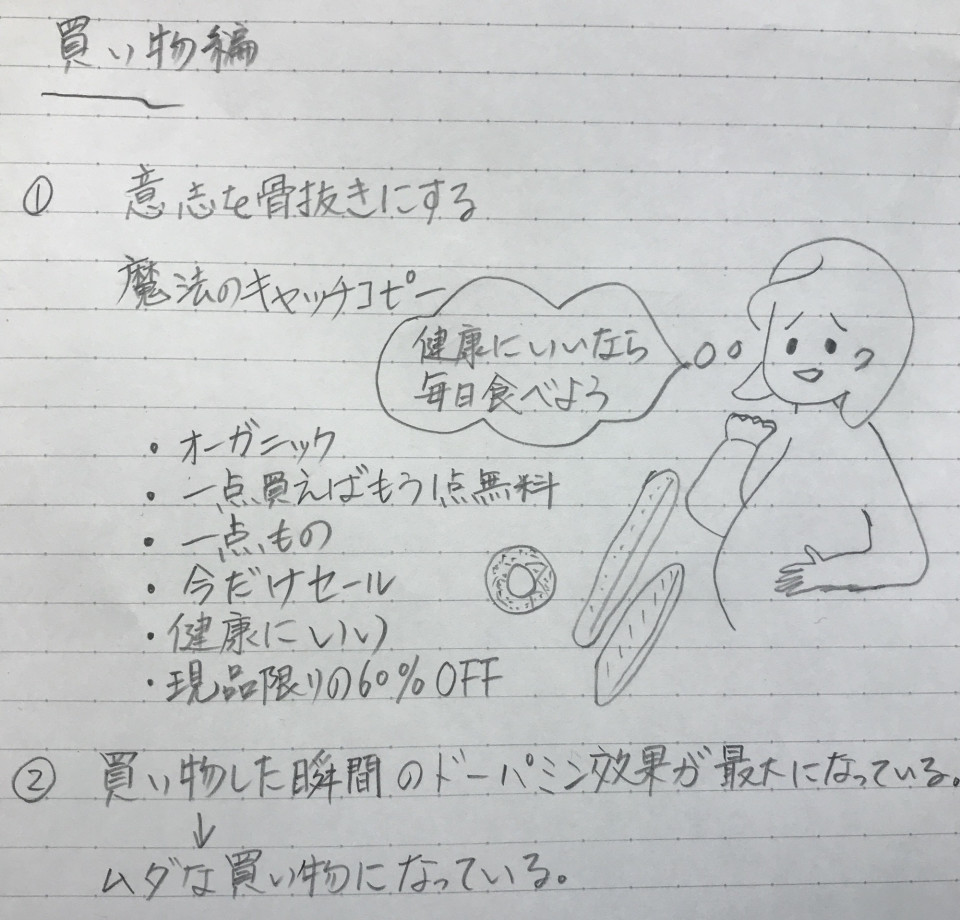 買い物編
① 意志を骨抜きにする
魔法のキャッチコピー
健康にいいなら
毎日食べよう
・オーガニック
・一点買えばもう1点無料
・一点もの
・今だけセール
・健康にいい
・現品限りの60%OFF
② 買い物した瞬間のドーパミン効果が最大になっている。
↓
ムダな買い物になっている。